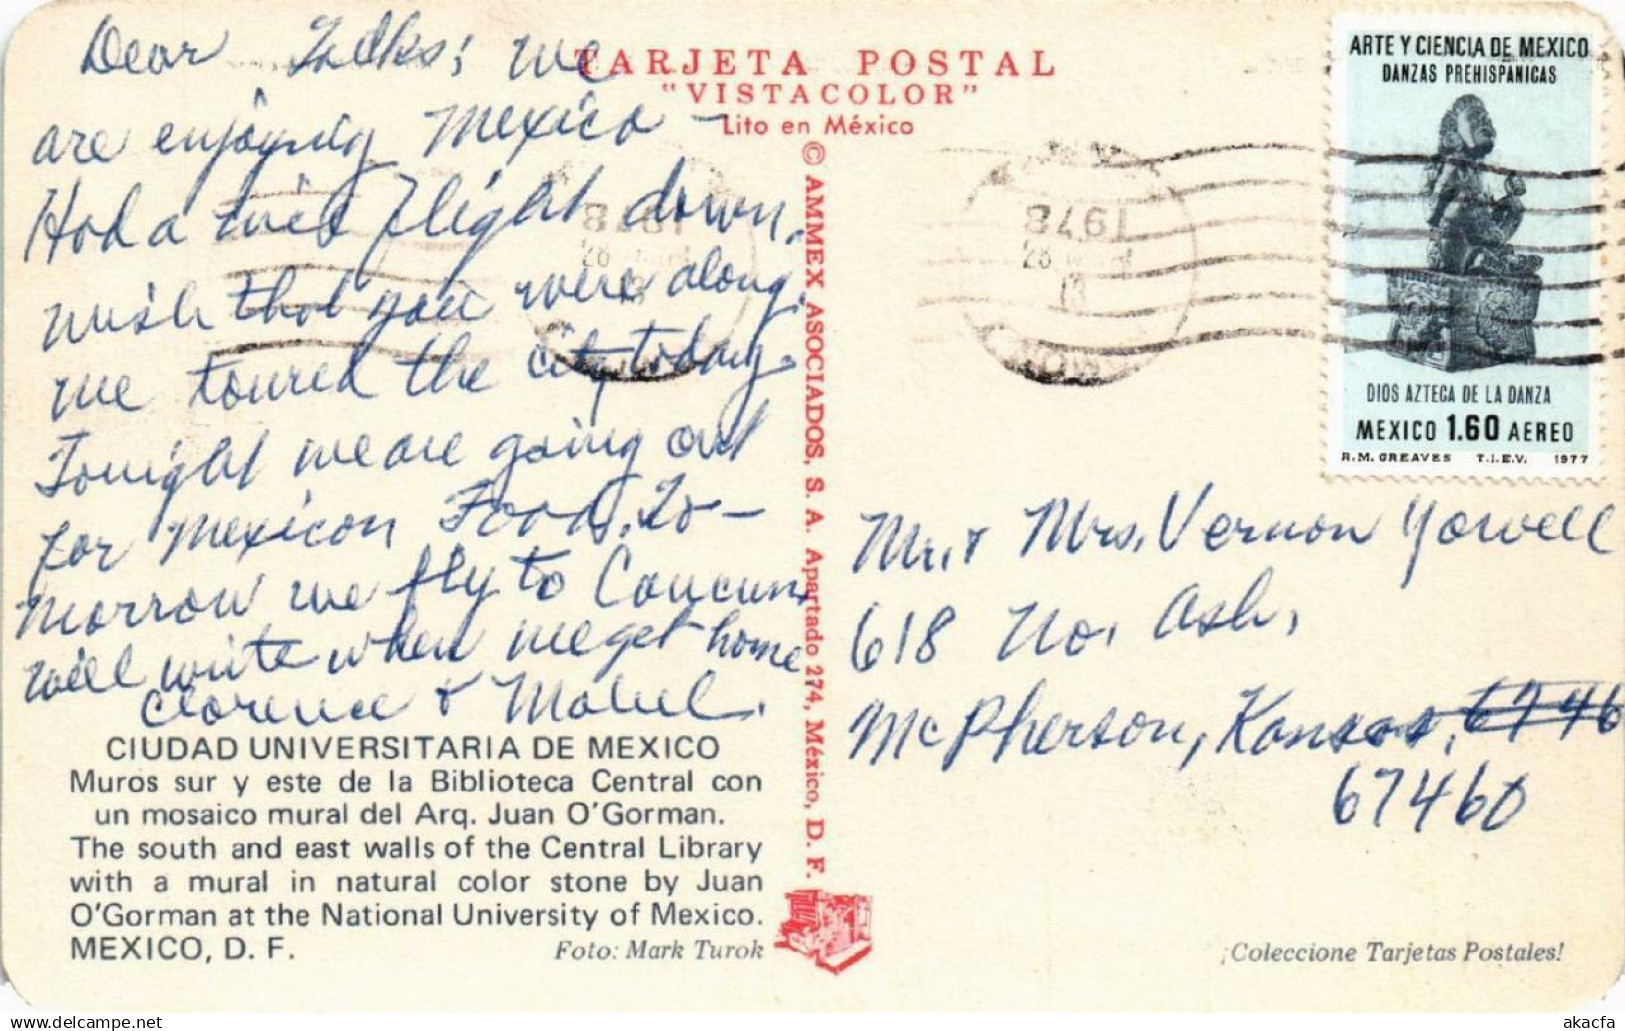 Dear Folks; we
are enjoying Mexico -
Had a nice flight down,
wish that you were along.
we toured the city today.
Tonight we are going out
for Mexican Food. To-
morrow we fly to Cancun,
will write when we get home
Clarence & Mabel.
CIUDAD UNIVERSITARIA DE MEXICO
Muros sur y este de la Biblioteca Central con
un mosaico mural del Arq. Juan O'Gorman.
The south and east walls of the Central Library
with a mural in natural color stone by Juan
O'Gorman at the National University of Mexico.
MEXICO, D. F.
Foto: Mark Turok
TARJETA POSTAL
"VISTACOLOR"
Lito en México
© AMMEX ASOCIADOS, S. A. Apartado 274, México, D. F.
1978
1978
ARTE Y CIENCIA DE MEXICO
DANZAS PREHISPANICAS
DIOS AZTECA DE LA DANZA
MEXICO 1.60 AEREO
R.M. GREAVES T.I.E.V. 1977
Mr. & Mrs. Vernon Yowell
618 No. Ash,
McPherson, Kansas, 67460
¡Coleccione Tarjetas Postales!
akacfa